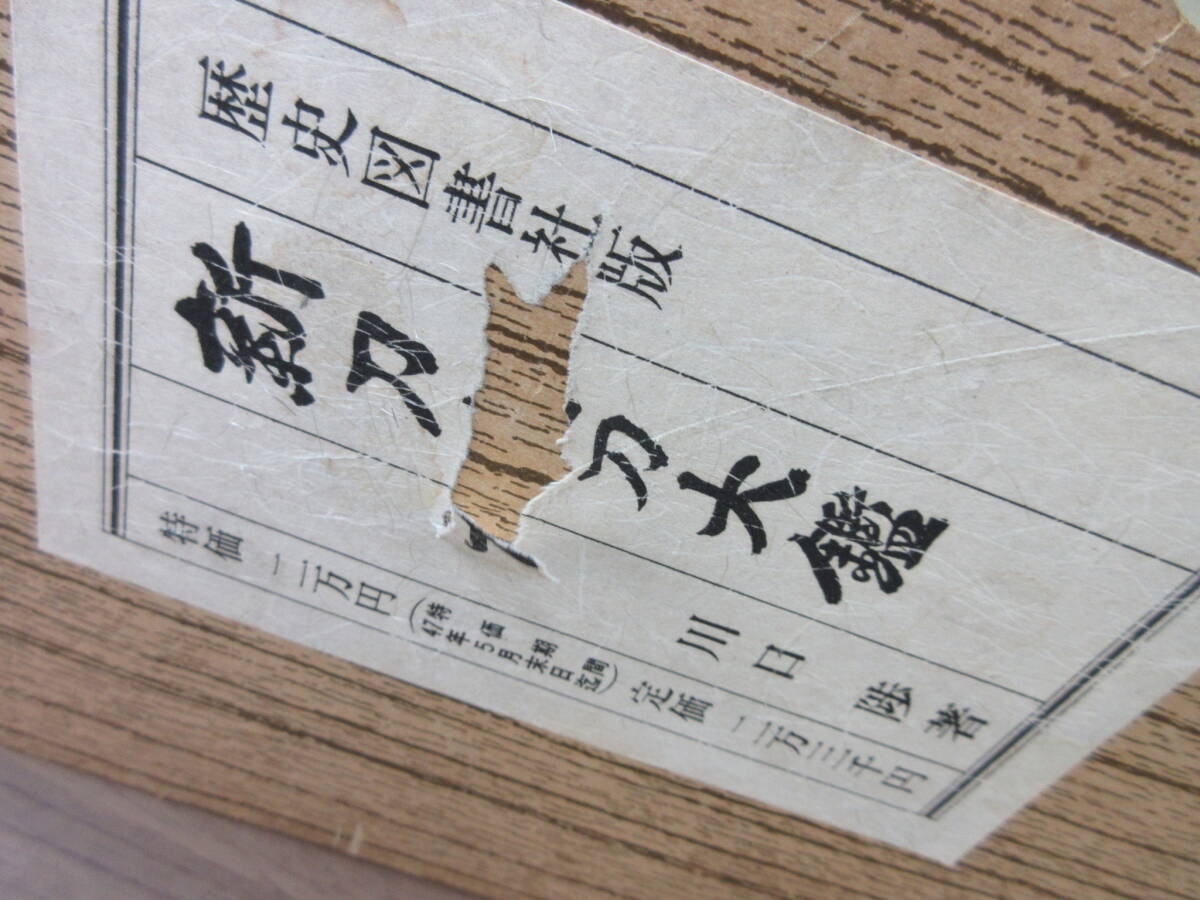 歴史図書社版
新刀 刀大鑑
川口 陟著
特価 二万円(特価期間 47年5月末日迄)定価 二万三千円